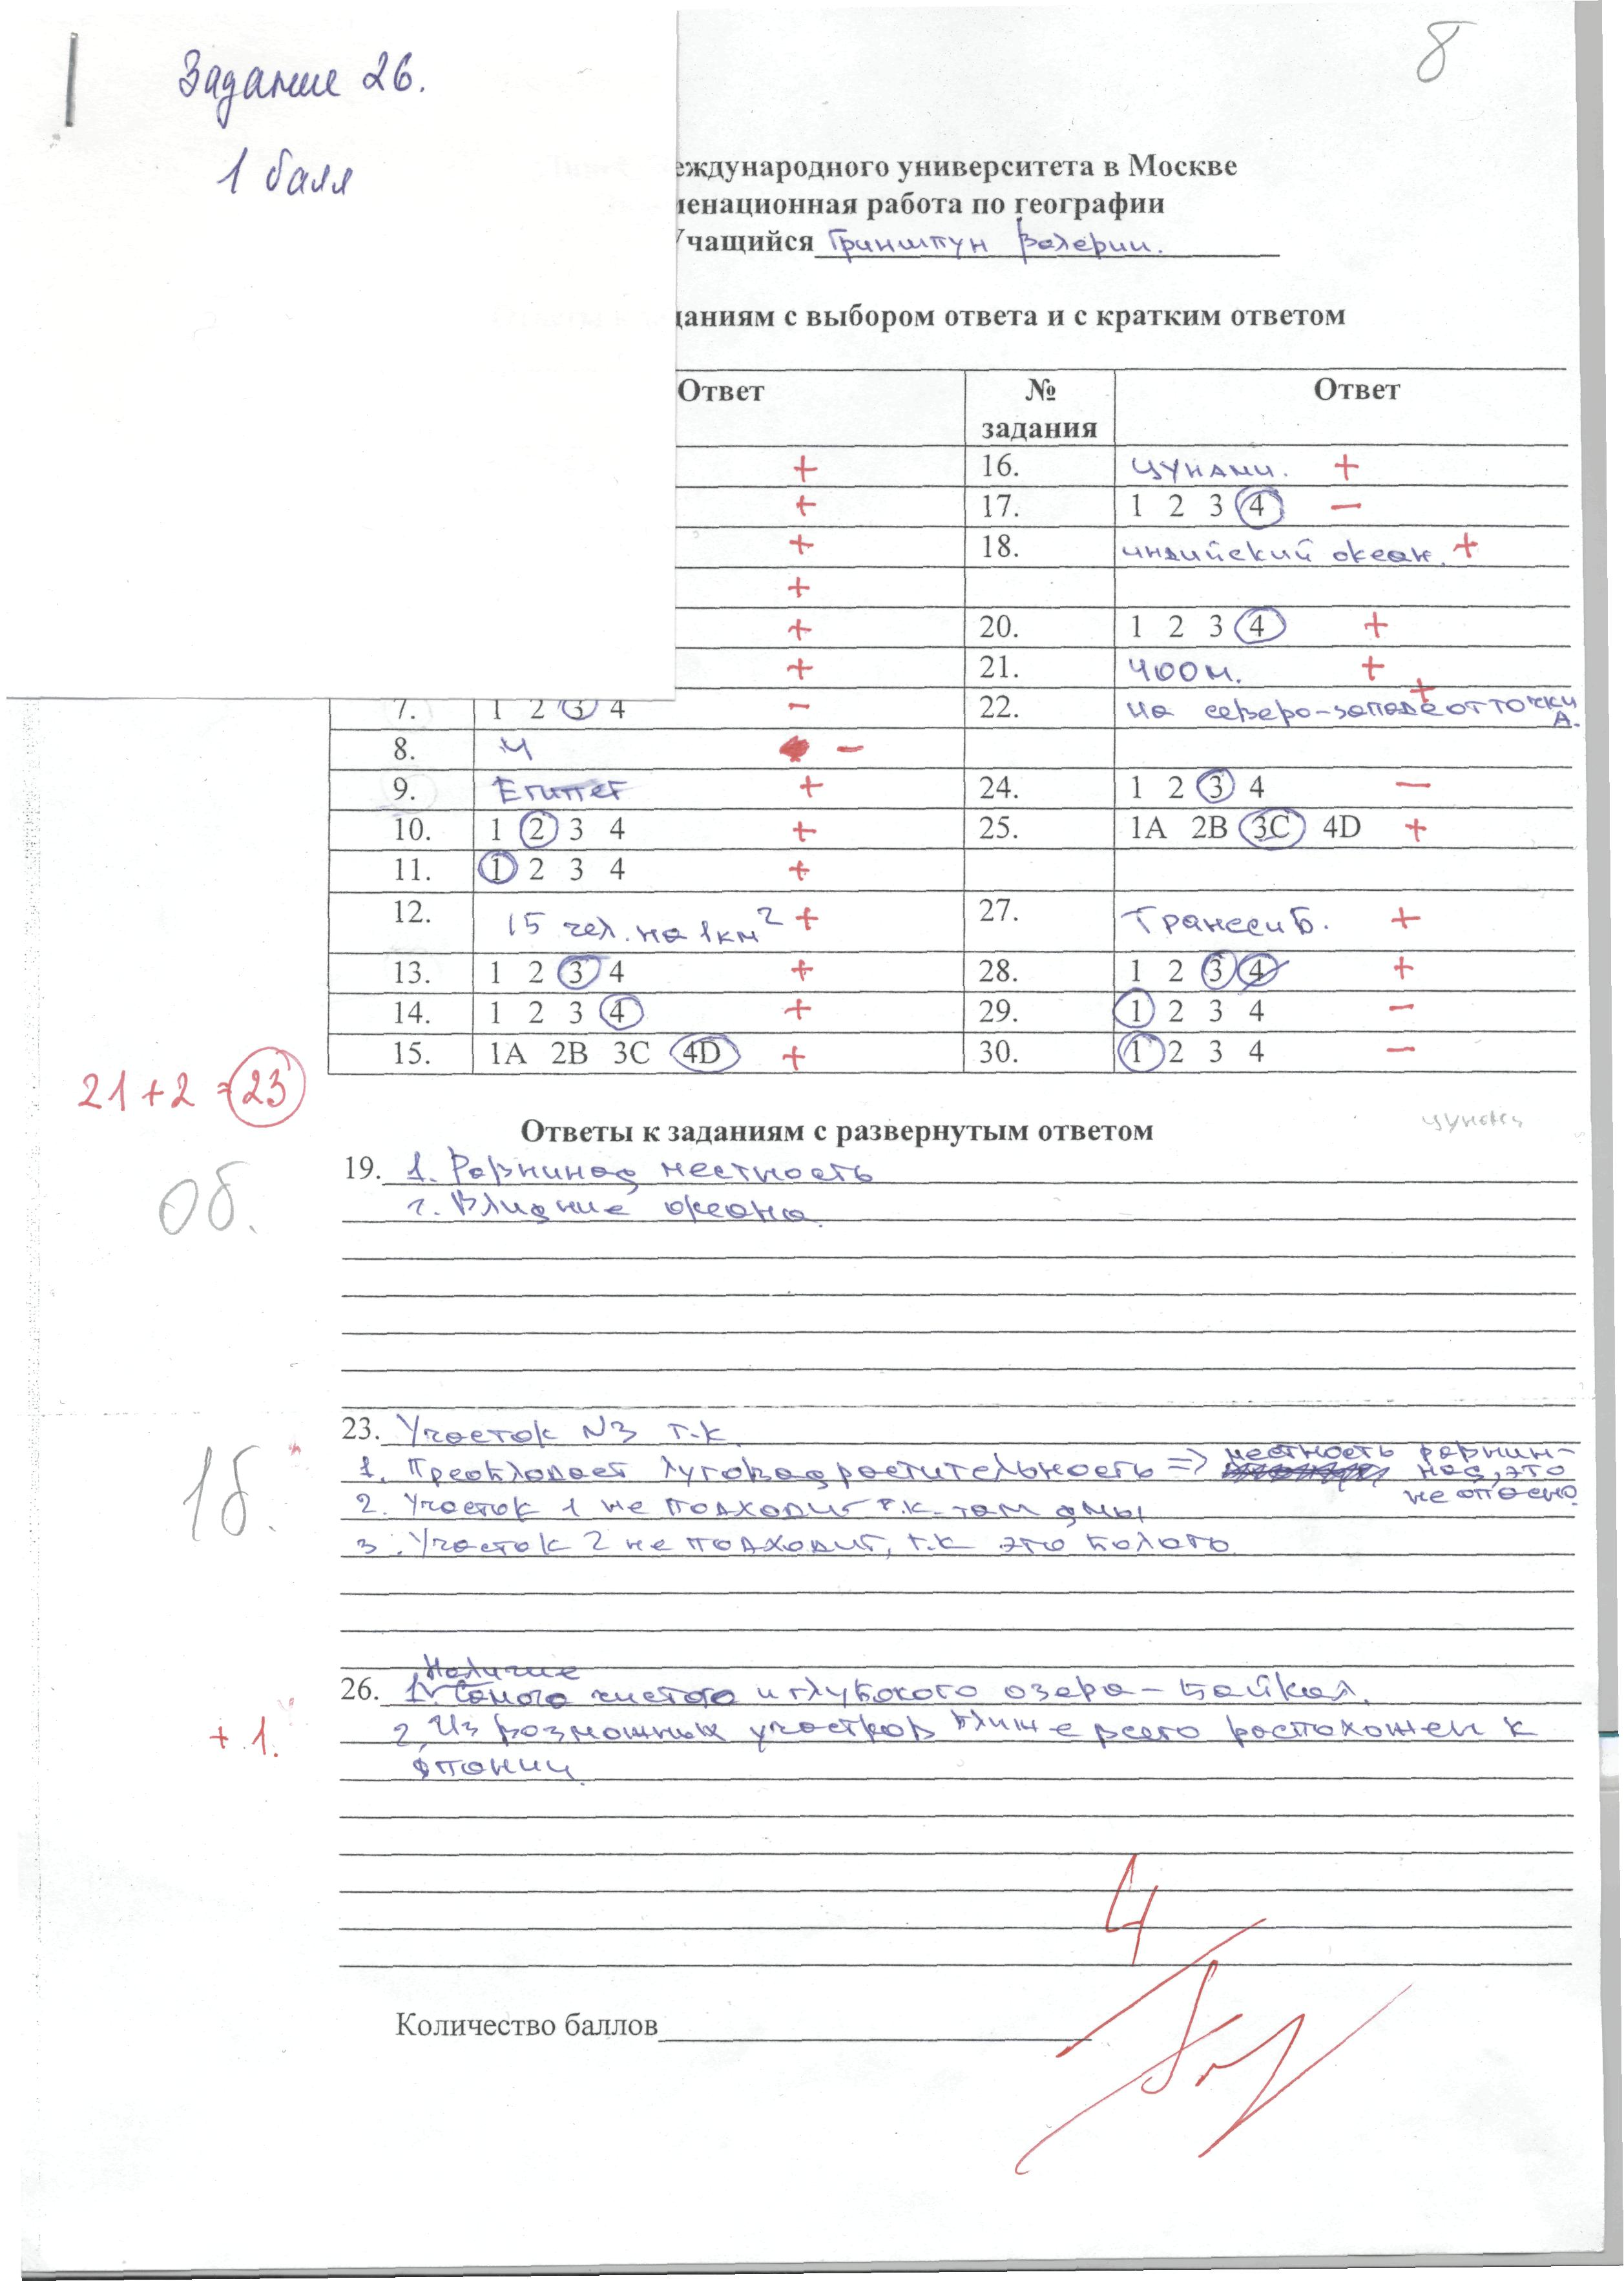 Задание 26.
1 балл
8
еждународного университета в Москве
енационная работа по географии
Учащийся Гринштун Валерии.
даниям с выбором ответа и с кратким ответом
Ответ № задания Ответ
+ 16. цунами. +
+ 17. 1 2 3 4 −
+ 18. индийский океан. +
+
+ 20. 1 2 3 4 +
+ 21. 400м. +
7. 1 2 3 4 − 22. на северо-западе от точки А. +
8. 4 −
9. Египет + 24. 1 2 3 4 −
10. 1 2 3 4 + 25. 1A 2B 3C 4D +
11. 1 2 3 4 +
12. 15 чел. на 1км² + 27. Транссиб. +
13. 1 2 3 4 + 28. 1 2 3 4 +
14. 1 2 3 4 + 29. 1 2 3 4 −
15. 1A 2B 3C 4D + 30. 1 2 3 4 −
21+2=23
Ответы к заданиям с развернутым ответом
цунами
19. 1. Равниная местность
2. Влияние океана.
0б.
23. Участок N3 т.к
1. Преобладает луговая растительность => местность равнинная, это не опасно.
2. Участок 1 не подходит т.к. там ямы
3. Участок 2 не подходит, т.к это болото
1б.
Наличие
26. 1. Самого чистого и глубокого озера – Байкал.
2. Из возможных участков ближе всего расположен к
Японии.
+ 1.
4
Количество баллов